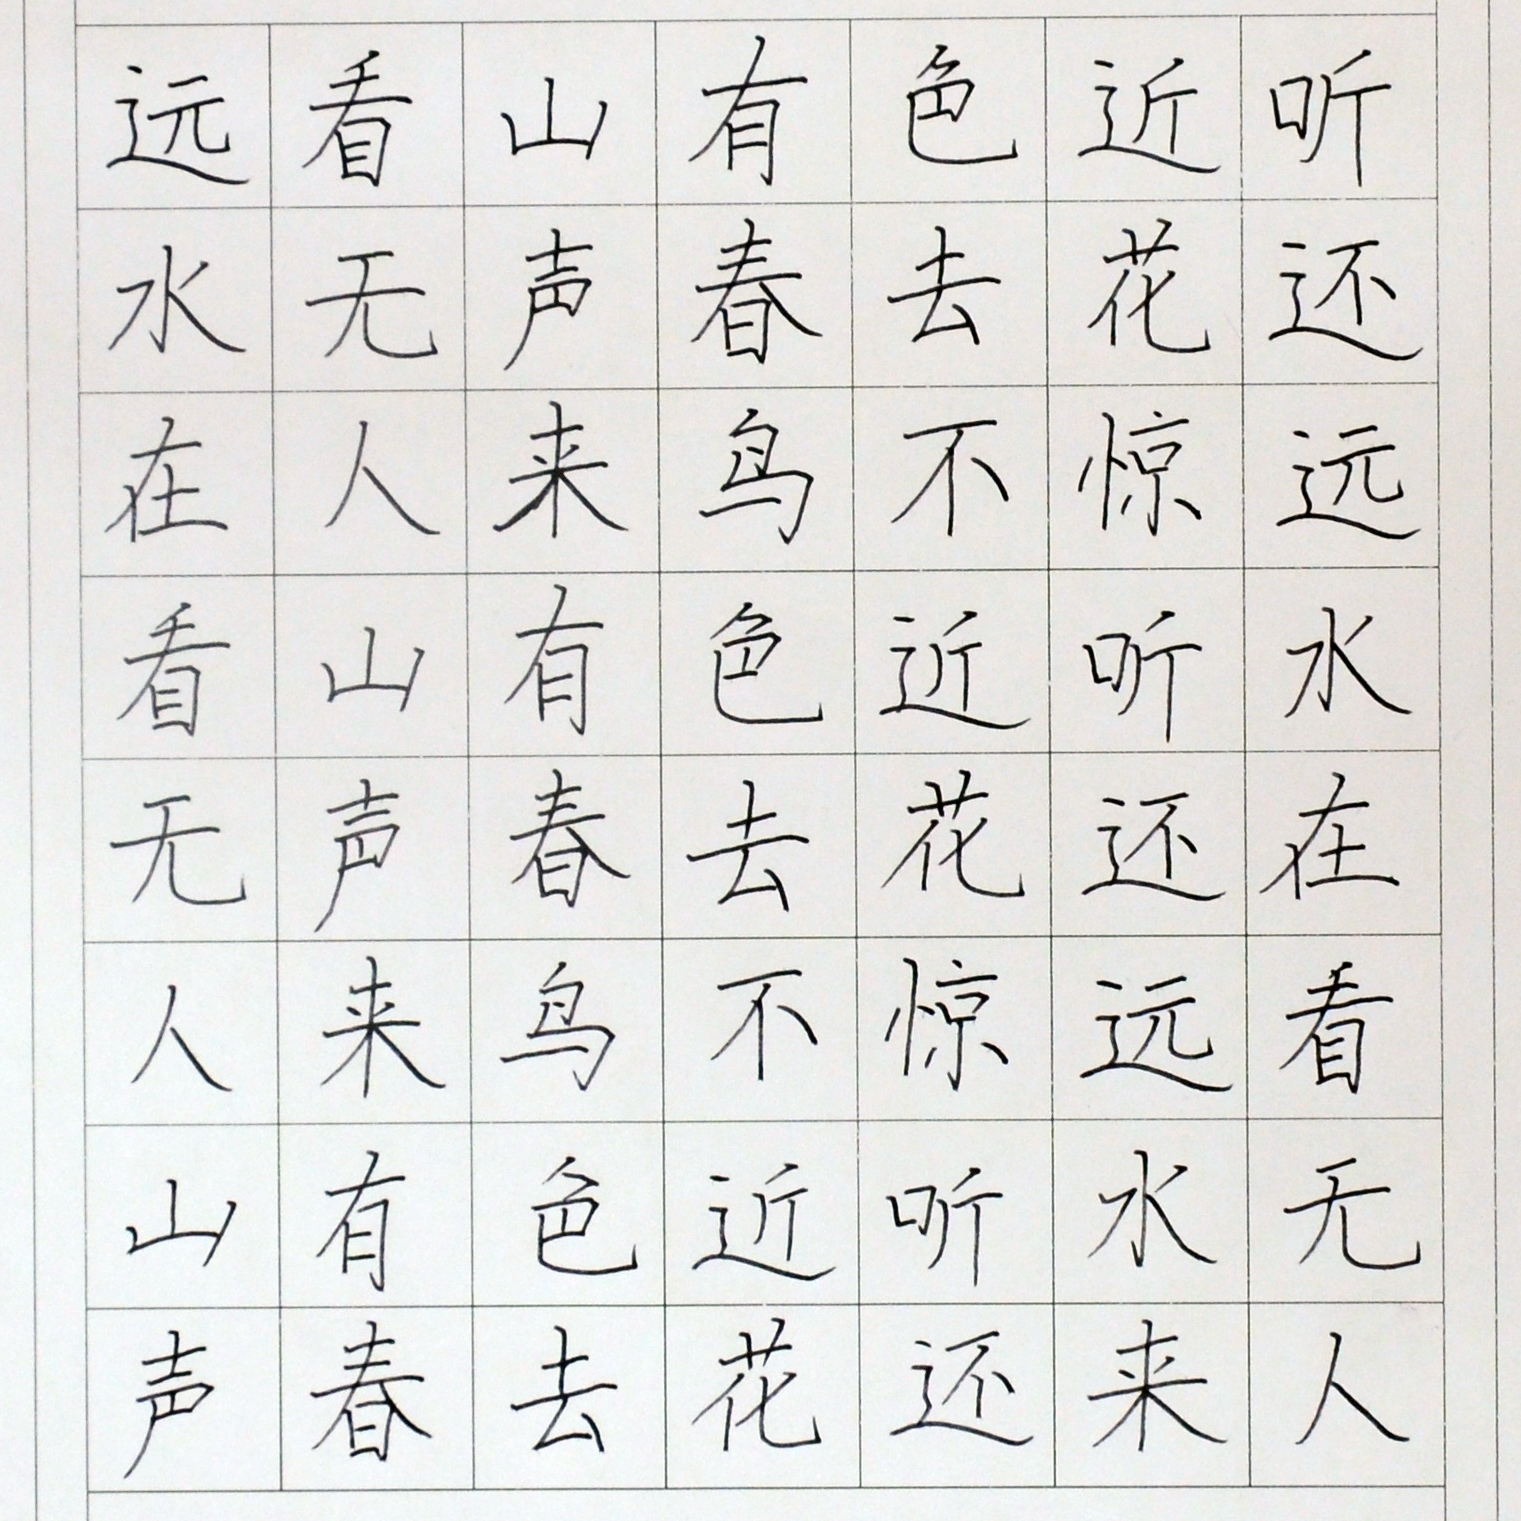 远看山有色近听
水无声春去花还
在人来鸟不惊远
看山有色近听水
无声春去花还在
人来鸟不惊远看
山有色近听水无
声春去花还来人